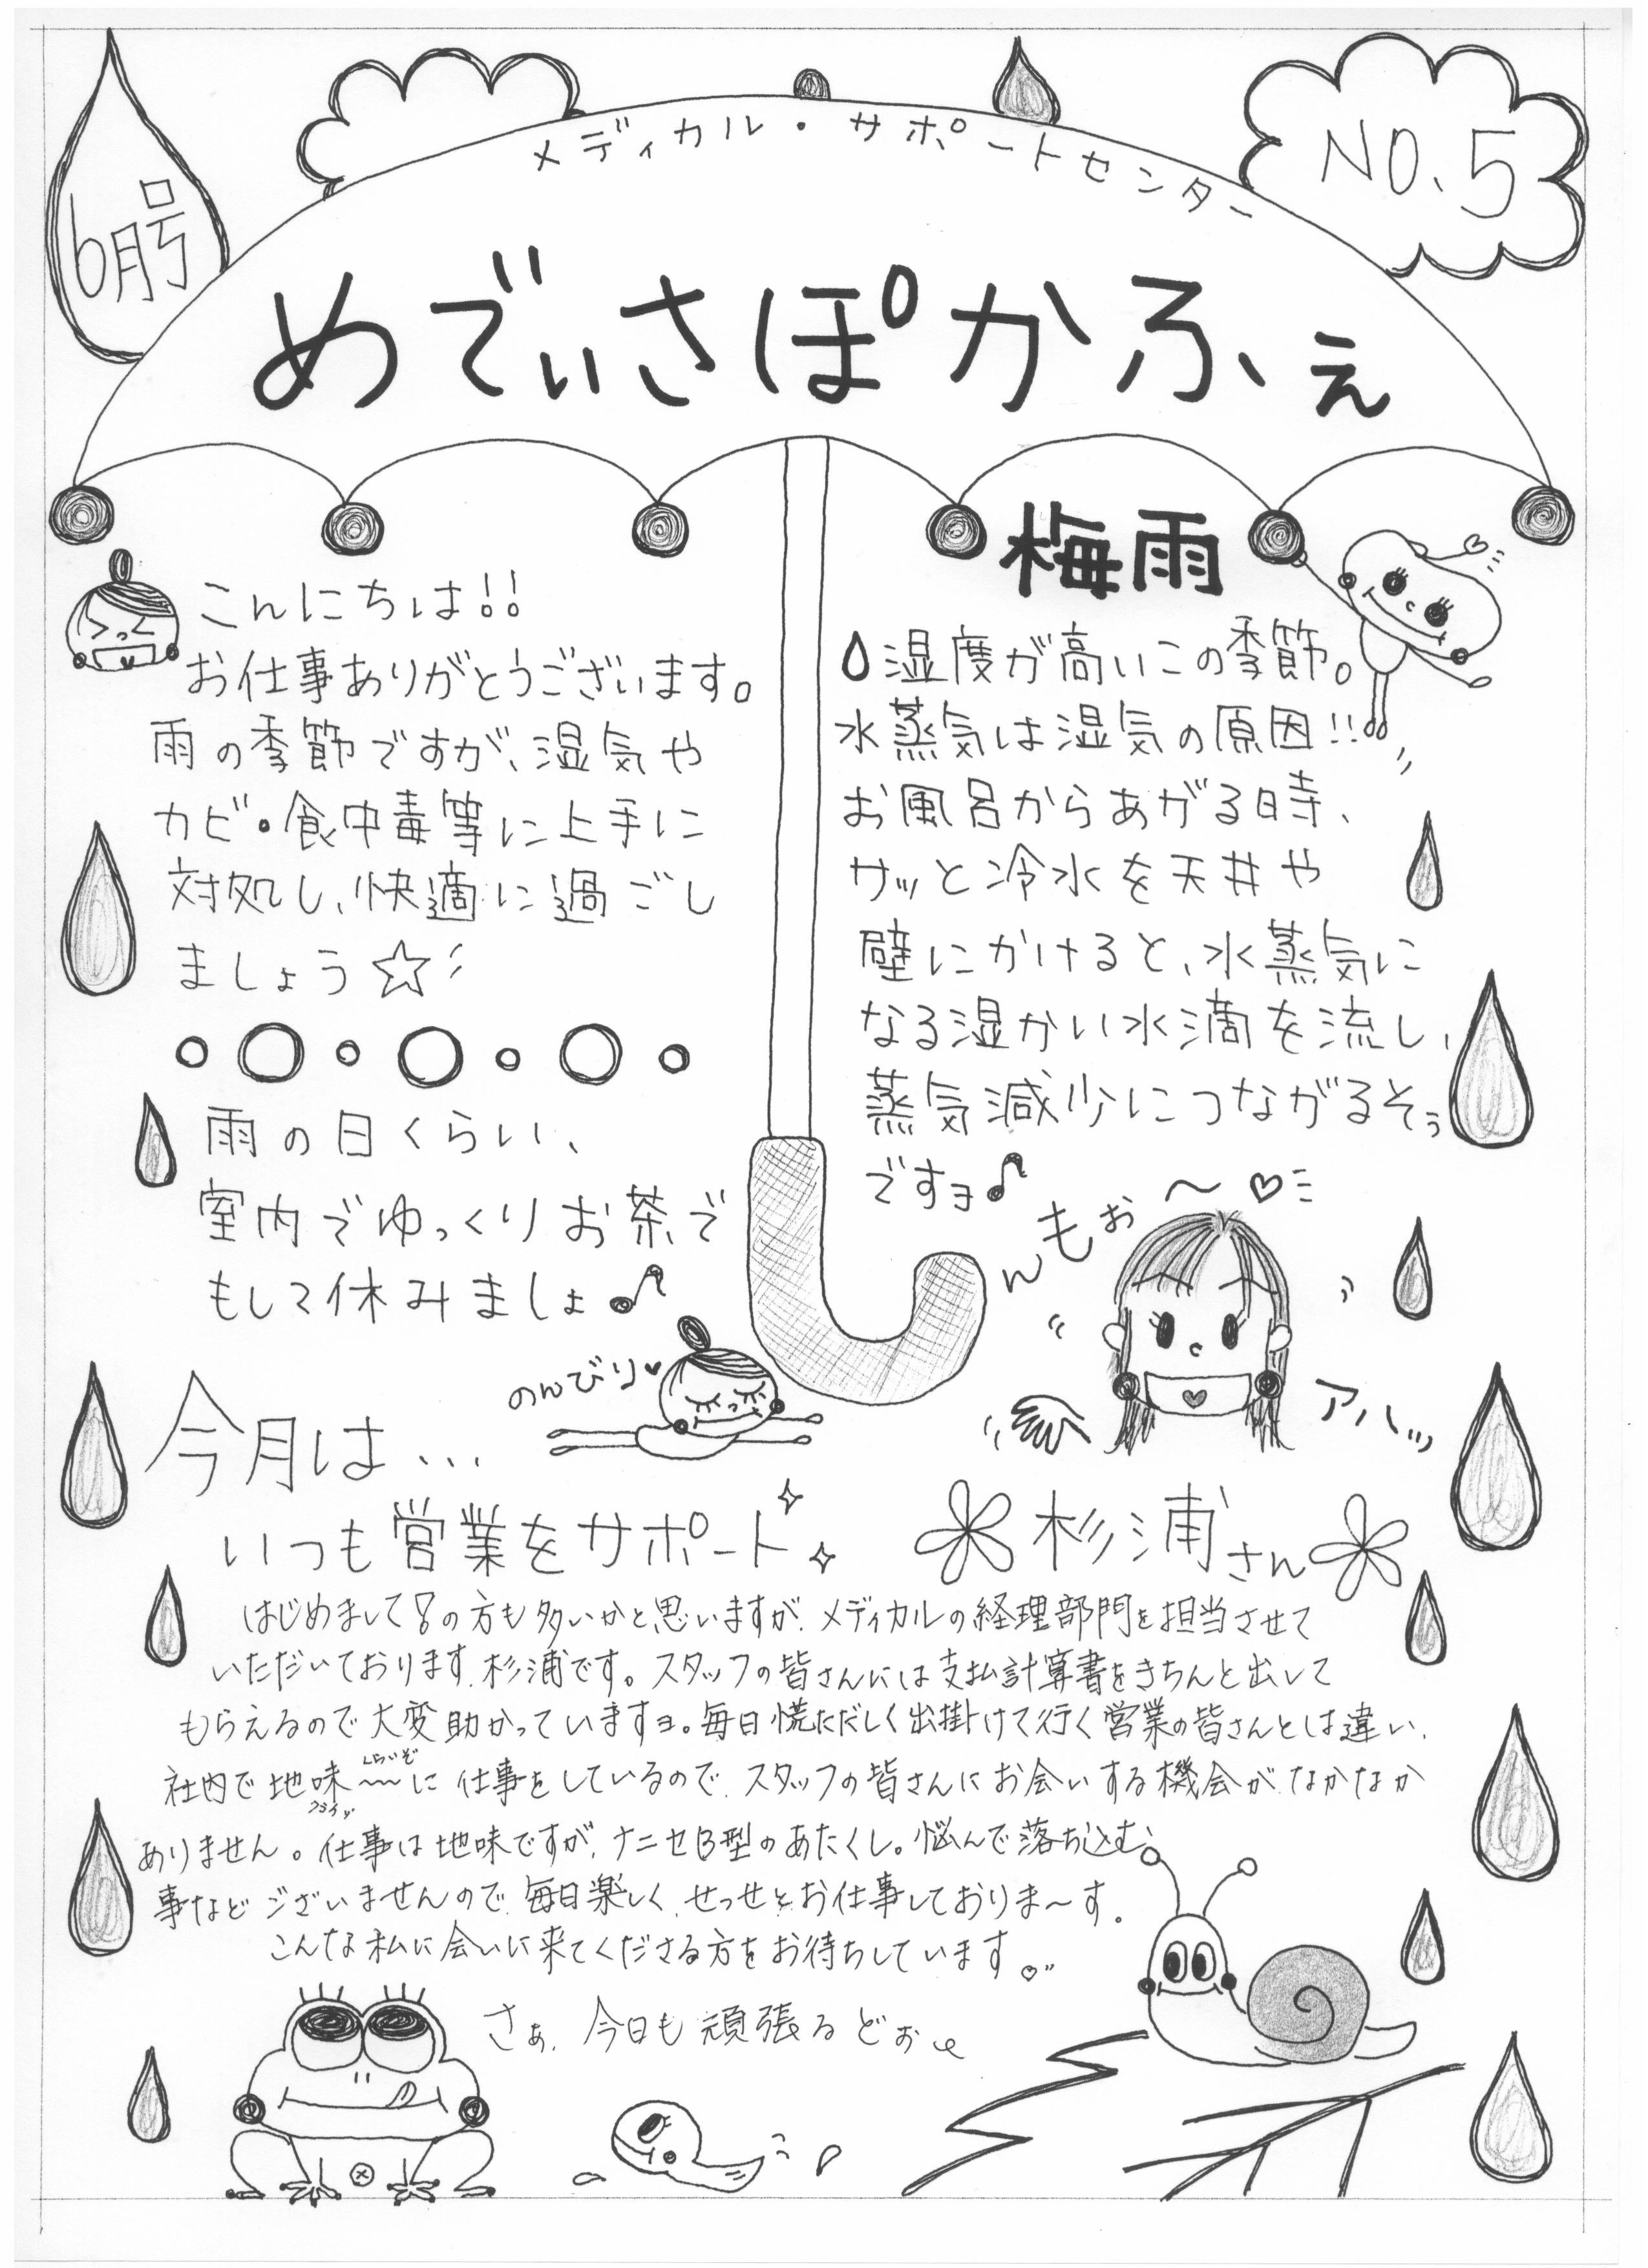 6月号
メディカル・サポートセンター
NO.5
めでぃさぽかふぇ
こんにちは!!
お仕事ありがとうございます。
雨の季節ですが、湿気や
カビ・食中毒等に上手に
対処し、快適に過ごし
ましょう☆
雨の日くらい、
室内でゆっくりお茶で
もして休みましょ♪
のんびり♥
梅雨
湿度が高いこの季節。
水蒸気は湿気の原因!!
お風呂からあがる時、
サッと冷水を天井や
壁にかけると、水蒸気に
なる湿かい水滴を流し、
蒸気減少につながるそぅ
ですョ♪
んもぉ〜♡
アハッ
今月は…
いつも営業をサポート
杉浦さん
はじめまして!の方も多いかと思いますが、メディカルの経理部門を担当させて
いただいております、杉浦です。スタッフの皆さんには支払計算書をきちんと出して
もらえるので大変助かっていますョ。毎日慌ただしく出掛けて行く営業の皆さんとは違い、
社内で地味〜〜に仕事をしているので、スタッフの皆さんにお会いする機会がなかなか
ありません。仕事は地味ですが、ナニセB型のあたくし。悩んで落ち込む
事などございませんので、毎日楽しく、せっせとお仕事しておりま〜す。
こんな私に会いに来てくださる方をお待ちしています。
さぁ、今日も頑張るどぉ